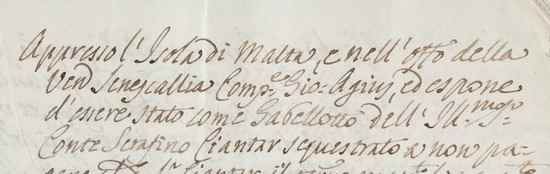 Appresso l'Isola di Malta, e nell'offo della
Ven: Senescallia Comp.e Gio: Agius, ed espone
d'essere stato come Gabellotto dell' Ill:mo Sig.
Conte Serafino Ciantar sequestrato a non pa-
Ciantar il